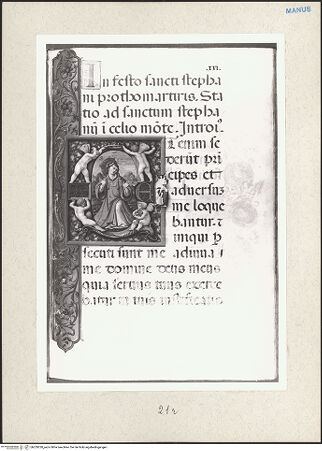 MANUS
.xvi.
In festo sancti stepha
ni prothomartiris. Sta
tio ad sanctum stepha
nū ī celio mōte. Introi
Etenim se
derūt prī
cipes et
aduersuz
me loque
bantur. ⁊
iniqui ꝑ
secuti sunt me adiuua
me domine deus meus
quia seruus tuus exerce
batur in tuis
21r